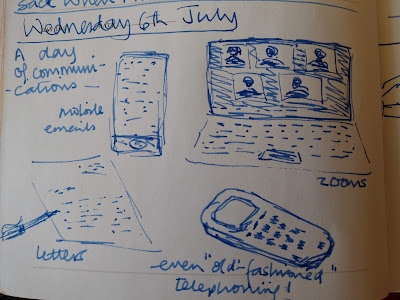 Sack Wheel
Wednesday 6th July
A day
of communi-
-cations —
mobile
emails
zooms
letters
—even "old-fashioned"
telephoning!